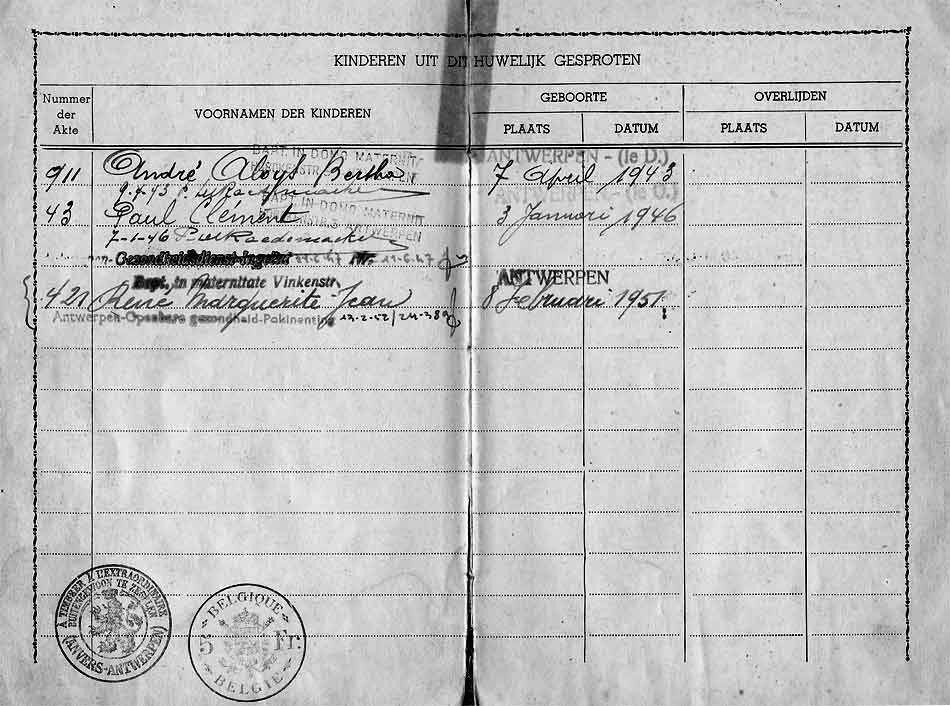 KINDEREN UIT DIT HUWELIJK GESPROTEN
Nummer der Akte
VOORNAMEN DER KINDEREN
GEBOORTE
OVERLIJDEN
PLAATS
DATUM
PLAATS
DATUM
BAPT. IN DOMO MATERNIT
ANTWERPEN - (Ie D.)
911 André Aloys Bertha 7 April 1943
9-4-43
ANTWERPEN - (Ie D.)
BAPT. IN DOMO MATERNIT
43 Paul Clément 3 Januari 1946
ANTWERPEN
7-1-46
Gezondheidsdienst-Ingeënt
Bapt. in maternitate Vinkenstr.
ANTWERPEN
421 René Marguerite Jean 8 Februari 1951
Antwerpen-Openbare gezondheid-Pokinenting 13-2-52/
A TIMBRER A L'EXTRAORDINAIRE
BUITENGEWOON TE ZEGELEN
(ANVERS-ANTWERPEN)
BELGIQUE
5 Fr.
BELGIË